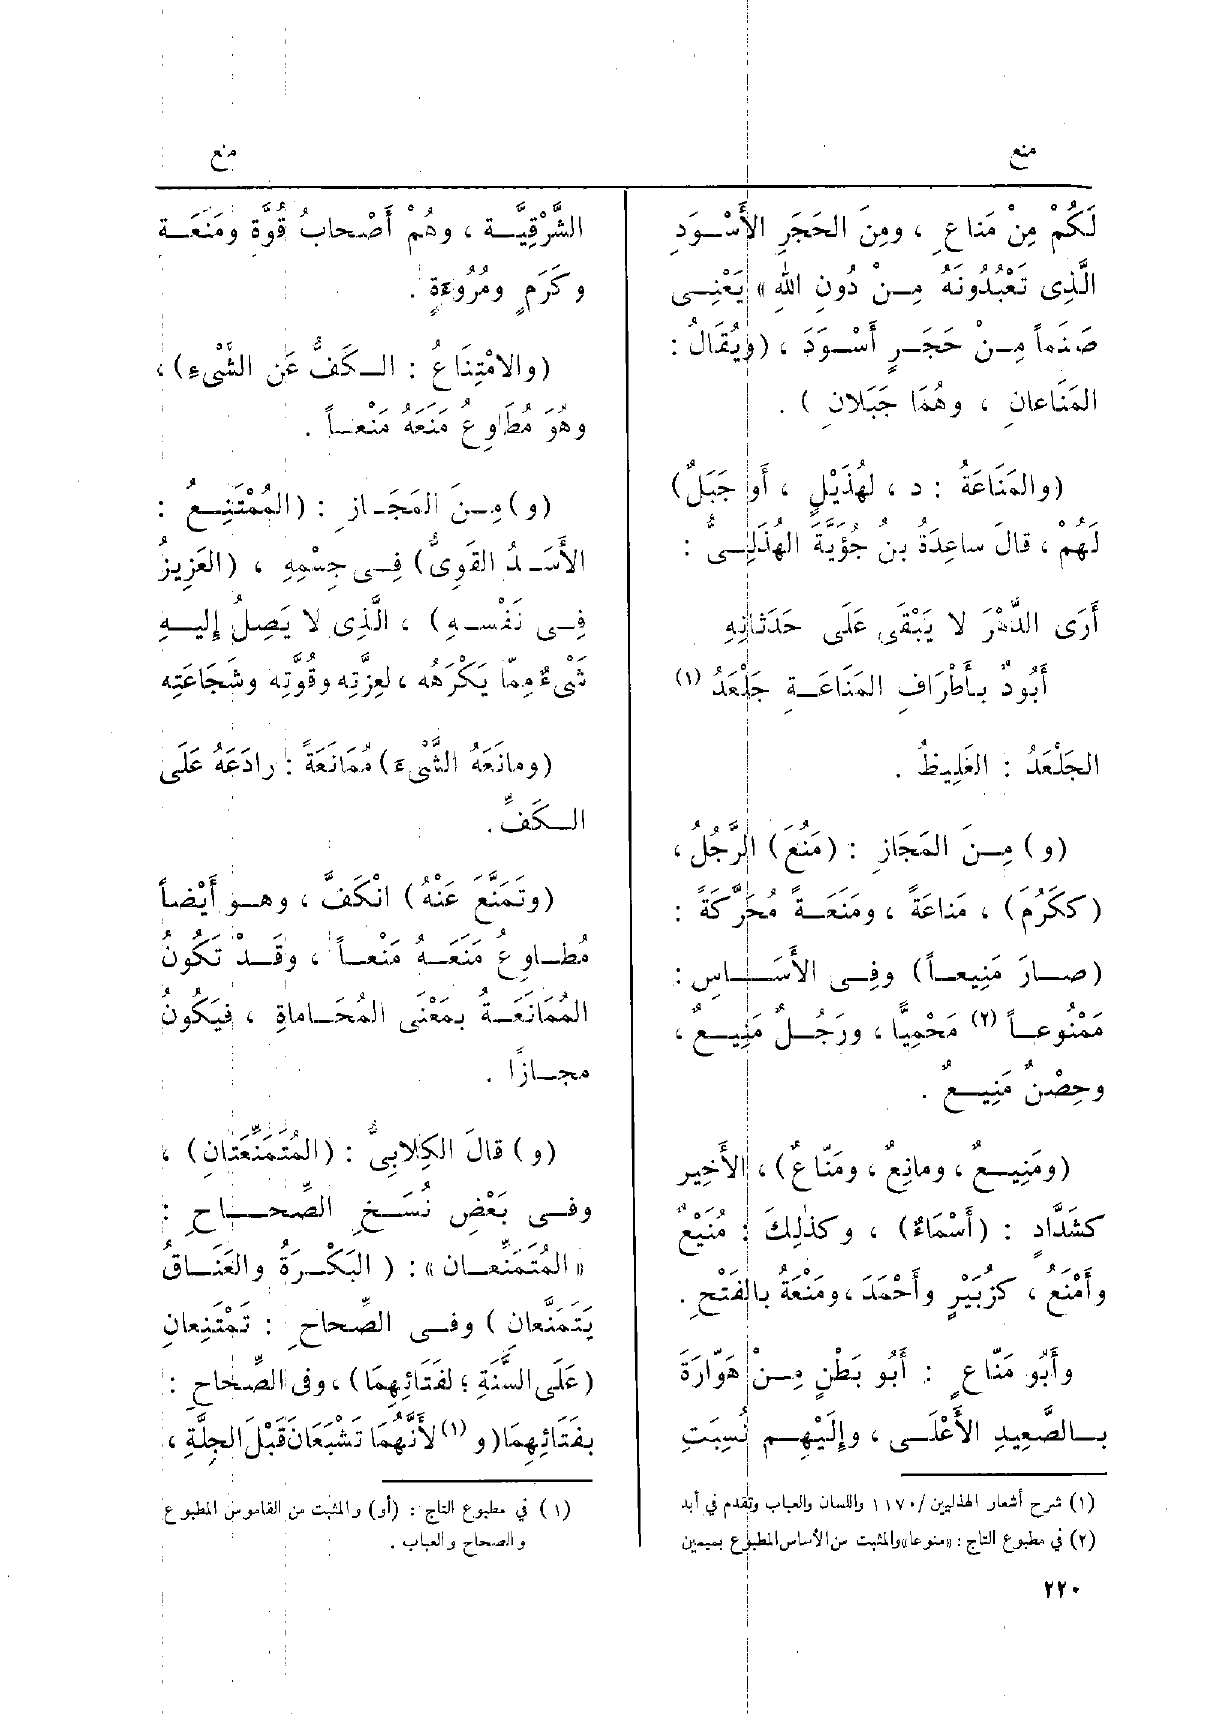 منع
منع
لَكُمْ مِنْ مَنَاعِ ، ومِنَ الحَجَرِ الأَسْوَدِ
الَّذِى تَعْبُدُونَهُ مِنْ دُونِ اللهِ» يَعْنِى
صَنَماً مِنْ حَجَرٍ أَسْوَدَ ، (ويُقَالُ :
المَنَاعانِ ، وهُمَا جَبَلانِ ) .
(والمَنَاعَةُ : د ، لهُذَيْلٍ ، أَو جَبَلٌ)
لَهُمْ ، قالَ ساعِدَةُ بنُ جُؤَيَّةَ الهُذَلِىُّ :
أَرَى الدَّهْرَ لا يَبْقَى عَلَى حَدَثَانِهِ
أَبُودٌ بأَطْرَافِ المَنَاعَةِ جَلْعَدُ (١)
الجَلْعَدُ : الغَلِيظُ .
(و) مِنَ المَجَازِ : (مَنُعَ) الرَّجُلُ ،
(ككَرُمَ) ، مَناعَةً ، ومَنَعَةً مُحَرَّكَةً :
(صارَ مَنِيعاً) وفِى الأَسَاسِ :
مَمْنُوعاً (٢) مَحْمِيًّا ، ورَجُلٌ مَنِيعٌ ،
وحِصْنٌ مَنِيعٌ .
(ومَنِيعٌ ، ومانِعٌ ، ومَنّاعٌ) ، الأَخِير
كشَدَّادٍ : (أَسْمَاءٌ) ، وكذلِكَ : مُنَيْعٌ
وأَمْنَعُ ، كزُبَيْرٍ وأَحْمَدَ ، ومَنْعَةُ بالفَتْحِ .
وأَبُو مَنّاعٍ : أَبُو بَطْنٍ مِنْ هَوّارَةَ
بالصَّعِيدِ الأَعْلَى ، وإِلَيْهِم نُسِبَتِ
(١) شرح أشعار الهذليين /١١٧٠ واللسان والعباب وتقدم في أبد
(٢) في مطبوع التاج : «منوعا» والمثبت من الأساس المطبوع بميمين
الشَّرْقِيَّة ، وهُمْ أَصْحابُ قُوَّة ومَنَعَة
وكَرَمٍ ومُرُوءَةٍ .
(والامْتِنَاعُ : الكَفُّ عَنِ الشَّىْءِ) ،
وهُوَ مُطَاوِعُ مَنَعَهُ مَنْعاً .
(و) مِنَ المَجَازِ : (المُمْتَنِعُ :
الأَسَدُ القَوِىُّ) فِى جِسْمِهِ ، (العَزِيزُ
فِى نَفْسهِ) ، الَّذِى لا يَصِلُ إِليهِ
شَىْءٌ مِمّا يَكْرَهُه ، لعِزَّتِه وقُوَّتِه وشَجَاعَتِه
(ومانَعَهُ الشَّىْءَ) مُمَانَعَةً : رادَعَهُ عَلَى
الكَفِّ .
(وتَمَنَّعَ عَنْهُ) انْكَفَّ ، وهو أَيْضاً
مُطاوِعُ مَنَعَهُ مَنْعاً ، وقَدْ تَكُونُ
المُمَانَعَةُ بمَعْنَى المُحَاماةِ ، فيَكُونُ
مجازًا .
(و) قالَ الكِلابِىُّ : (المُتَمَنِّعَتَانِ) ،
وفى بَعْضِ نُسَخِ الصِّحاحِ :
«المُتَمَنِّعان» : ( البَكْرَةُ والعَنَاقُ
يَتَمَنَّعانِ ) وفى الصِّحاحِ : تَمْتَنِعانِ
(عَلَى السَّنَةِ ؛ لفَتَائِهِمَا) ، وفى الصِّحَاحِ :
بفَتَائِهِمَا(و (١) لأَنَّهُمَا تَشْبَعَانِ قَبْلَ الجِلَّةِ ،
(١) في مطبوع التاج : (أو) والمثبت من القاموس المطبوع
والصحاح والعباب .
٢٢٠